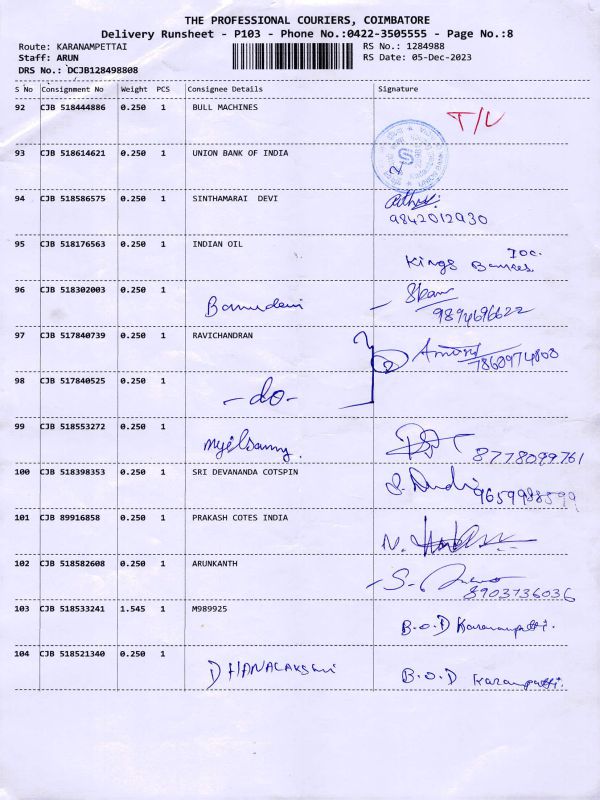 THE PROFESSIONAL COURIERS, COIMBATORE
Delivery Runsheet - P103 - Phone No.:0422-3505555 - Page No.:8
Route: KARANAMPETTAI
RS No.: 1284988
Staff: ARUN
RS Date: 05-Dec-2023
DRS No.: DCJB128498808
S No Consignment No Weight PCS Consignee Details Signature
92 CJB 518444886 0.250 1 BULL MACHINES
93 CJB 518614621 0.250 1 UNION BANK OF INDIA
94 CJB 518586575 0.250 1 SINTHAMARAI DEVI
9842012930
95 CJB 518176563 0.250 1 INDIAN OIL
IOC.
Kings
96 CJB 518302003 0.250 1
9894696622
97 CJB 517840739 0.250 1 RAVICHANDRAN
98 CJB 517840525 0.250 1
-do-
99 CJB 518553272 0.250 1
8778099761
100 CJB 518398353 0.250 1 SRI DEVANANDA COTSPIN
101 CJB 89916858 0.250 1 PRAKASH COTES INDIA
102 CJB 518582608 0.250 1 ARUNKANTH
8903736036
103 CJB 518533241 1.545 1 M989925
B.O.D
104 CJB 518521340 0.250 1 DHANALAKSHMI
B.O.D